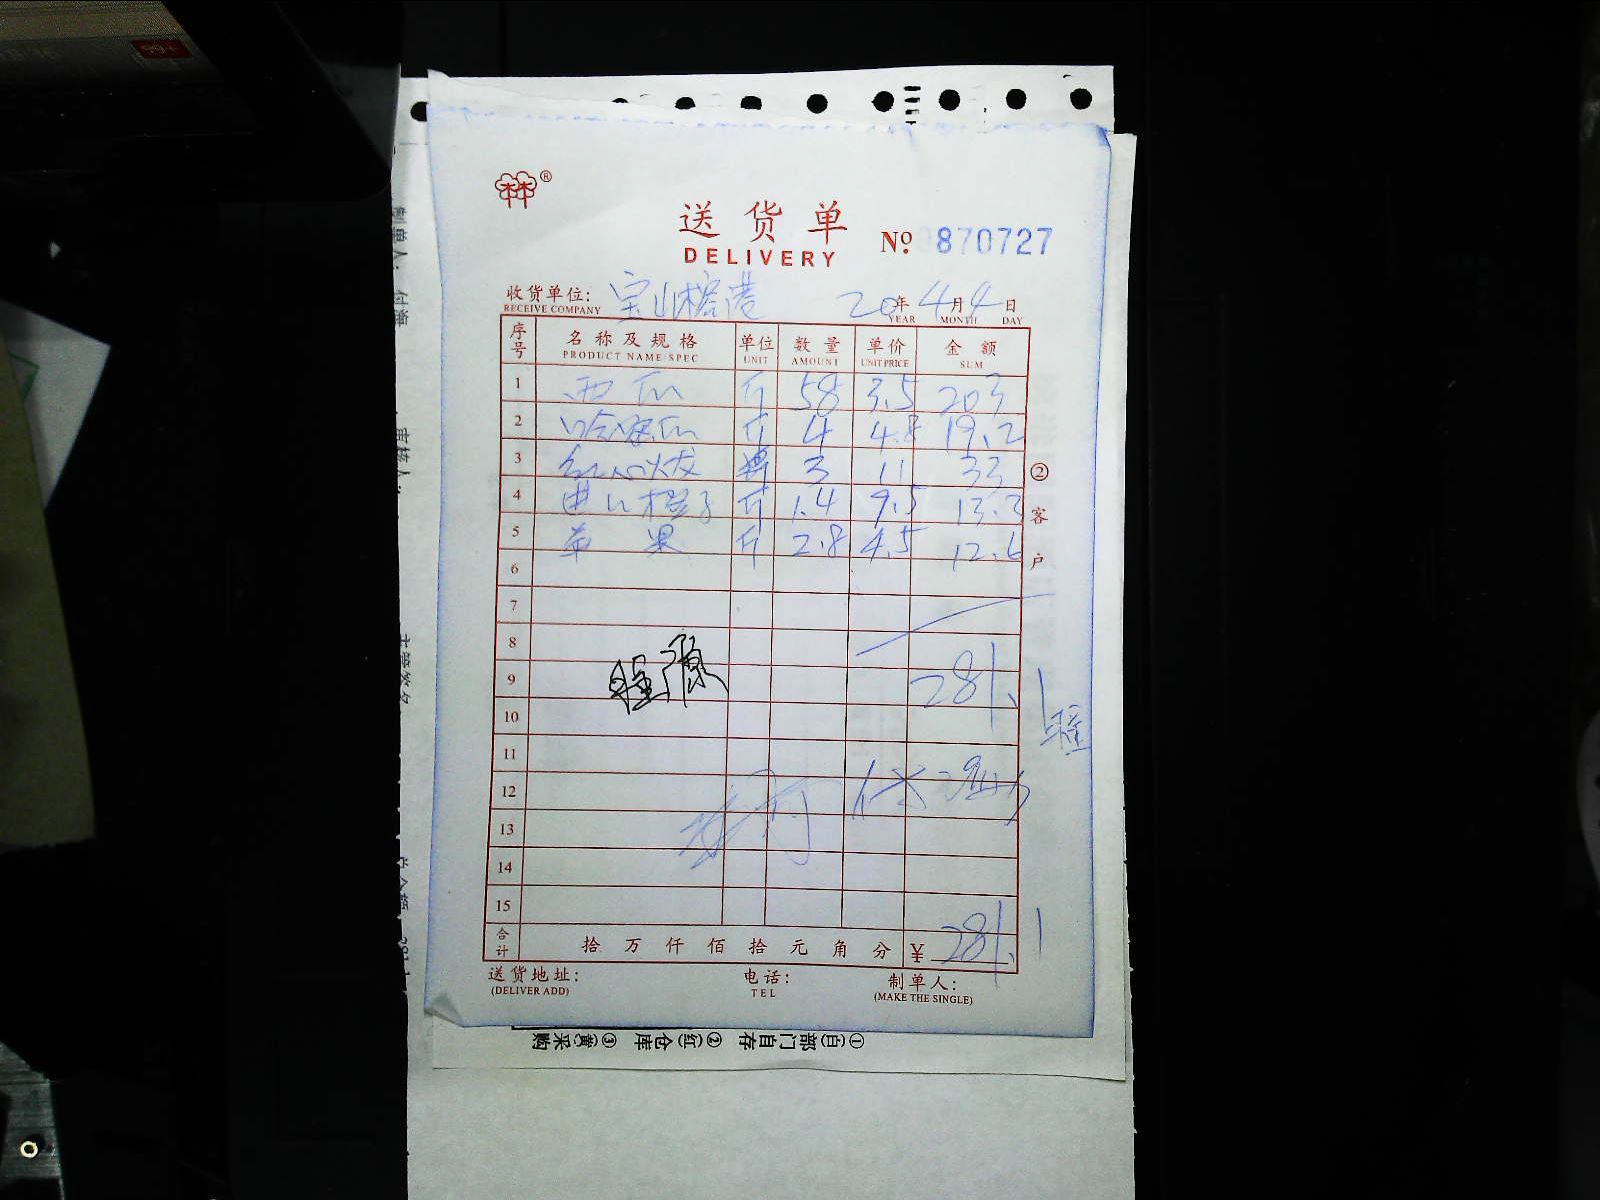 99+
®
送货单
DELIVERY
№ 0870727
收货单位: 宝山榕港 20年4月4日
RECEIVE COMPANY YEAR MONTH DAY
序号 名称及规格 单位 数量 单价 金额
PRODUCT NAME/SPEC UNIT AMOUNT UNIT PRICE SUM
1 西瓜 斤 58 3.5 203
2 哈密瓜 斤 4 4.8 19.2
3 红心火龙 斤 3 11 33
4 进口橙子 斤 1.4 9.5 13.3
5 苹果 斤 2.8 4.5 12.6
6
7
8
9 281.1
10
11
12
13
14
15
合计 拾万仟佰拾元角分 ¥ 281.1
②客户
送货地址: 电话: 制单人:
(DELIVER ADD) TEL (MAKE THE SINGLE)
①(白)部门自存 ②(红)仓库 ③(黄)采购